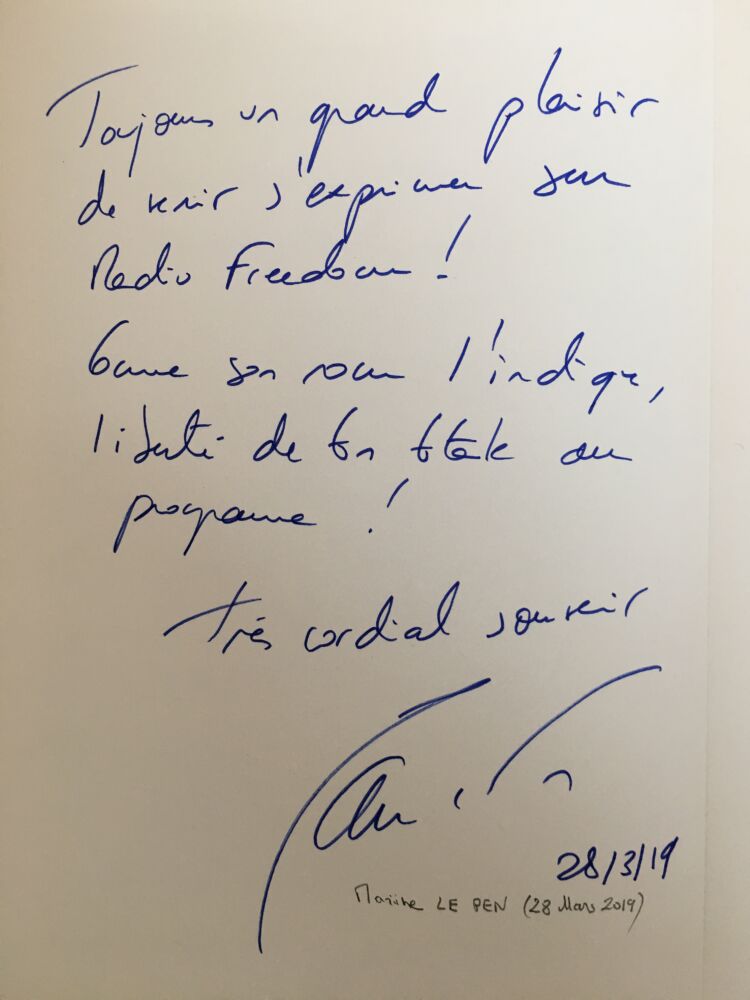 Toujours un grand plaisir
de venir s'exprimer sur
Radio Freedom !
Comme son nom l'indique,
liberté de ton totale au
programme !
très cordial souvenir
28/3/19
Marine LE PEN (28 Mars 2019)